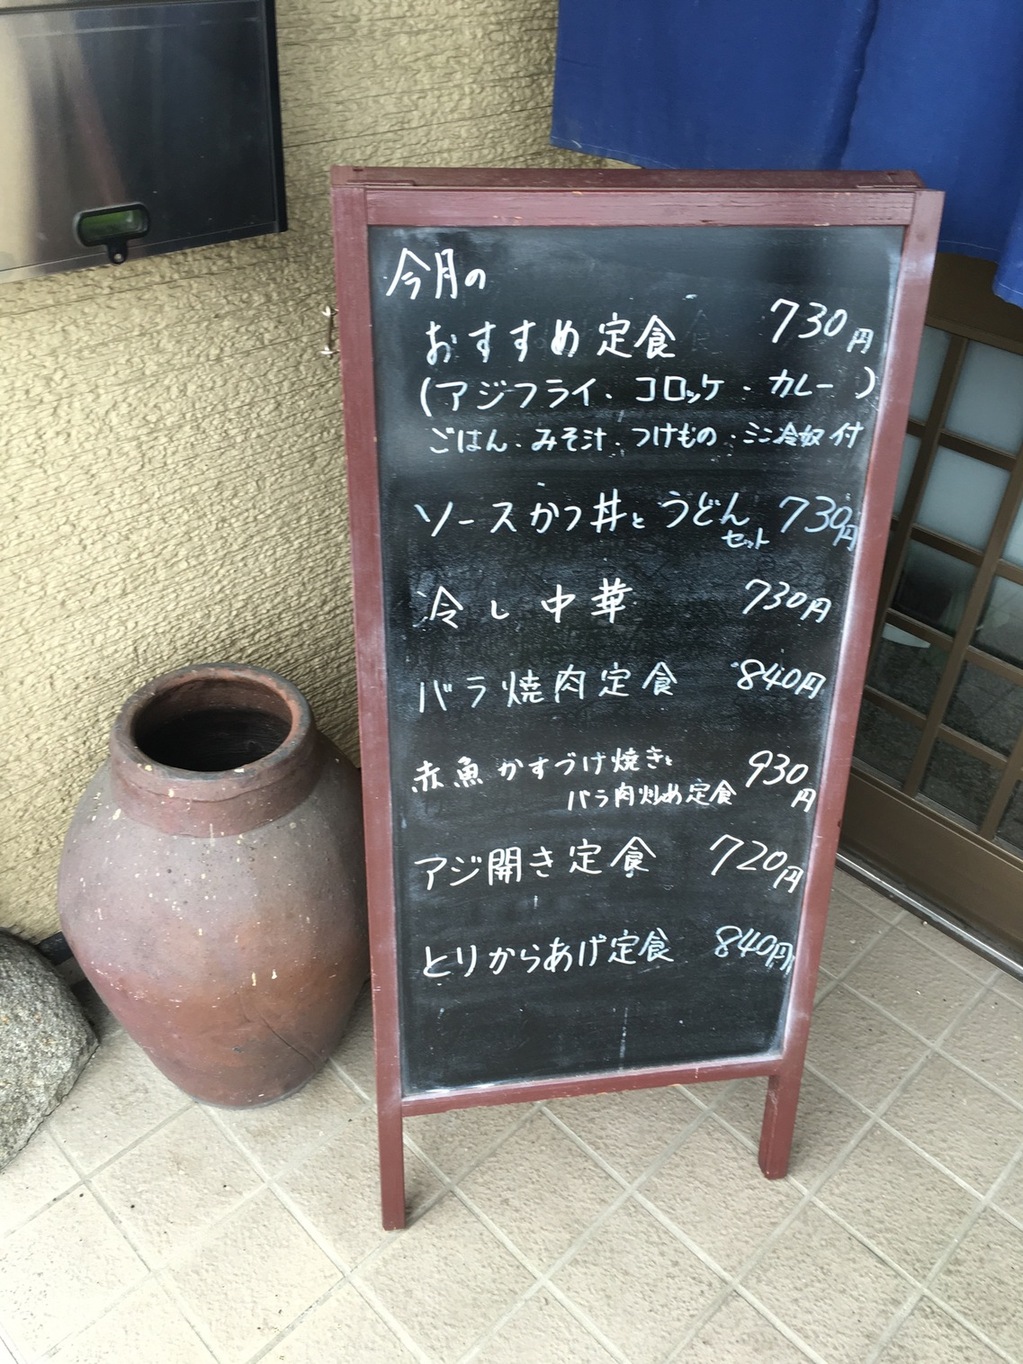 今月の
おすすめ定食 730円
(アジフライ・コロッケ・カレー)
ごはん・みそ汁・つけもの・ミニ冷奴付
ソースかつ丼とうどんセット 730円
冷し中華 730円
バラ焼肉定食 840円
赤魚かすづけ焼きと 930円
バラ肉炒め定食
アジ開き定食 720円
とりからあげ定食 840円